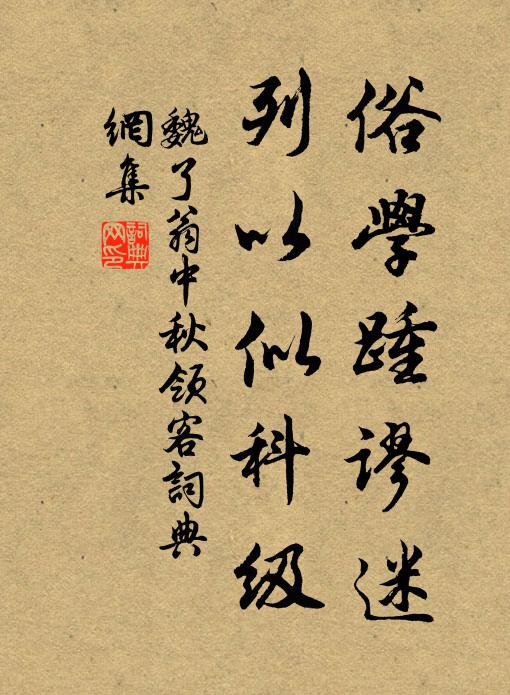 俗學踵謬迷
列以似科級
魏了翁中秋領客詞典
網集
詞典
网印